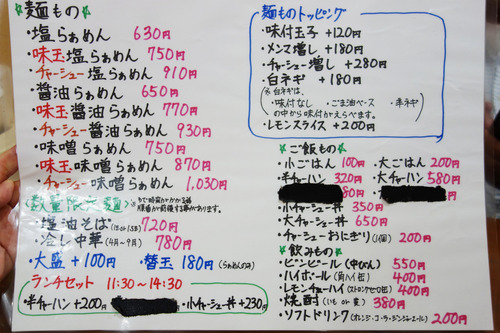 ☆麺もの☆
・塩らぁめん 630円
・味玉塩らぁめん 750円
・チャーシュー塩らぁめん 910円
・醤油らぁめん 650円
・味玉醤油らぁめん 770円
・チャーシュー醤油らぁめん 930円
・味噌らぁめん 750円
・味玉味噌らぁめん 870円
・チャーシュー味噌らぁめん 1,030円
☆数量限定麺☆
・塩油そば 720円
・冷し中華(4月〜9月) 780円
・大盛+100円 ・替玉180円(らぁめんのみ)
ランチセット 11:30〜14:30
・半チャーハン+200円
・小チャーシュー丼+230円
麺ものトッピング
・味付玉子+120円
・メンマ増し+180円
・チャーシュー増し+280円
・白ネギ+180円
※白ネギは、
・味付なし ・ごま油ベース ・辛ネギ
の中から味付がえらべます。
・レモンスライス+200円
☆ご飯もの☆
・小ごはん 100円 ・大ごはん 200円
・半チャーハン 320円 ・大チャーハン 580円
・小チャーシュー丼 350円
・大チャーシュー丼 650円
・チャーシューおにぎり(1個) 200円
☆飲みもの☆
・ビンビール(中びん) 550円
・ハイボール(角ハイ缶) 400円
・レモンチューハイ(ストロングゼロ缶) 400円
・焼酎(いも or 麦) 380円
・ソフトドリンク(オレンジ・コーラ・ジンジャーエール) 200円